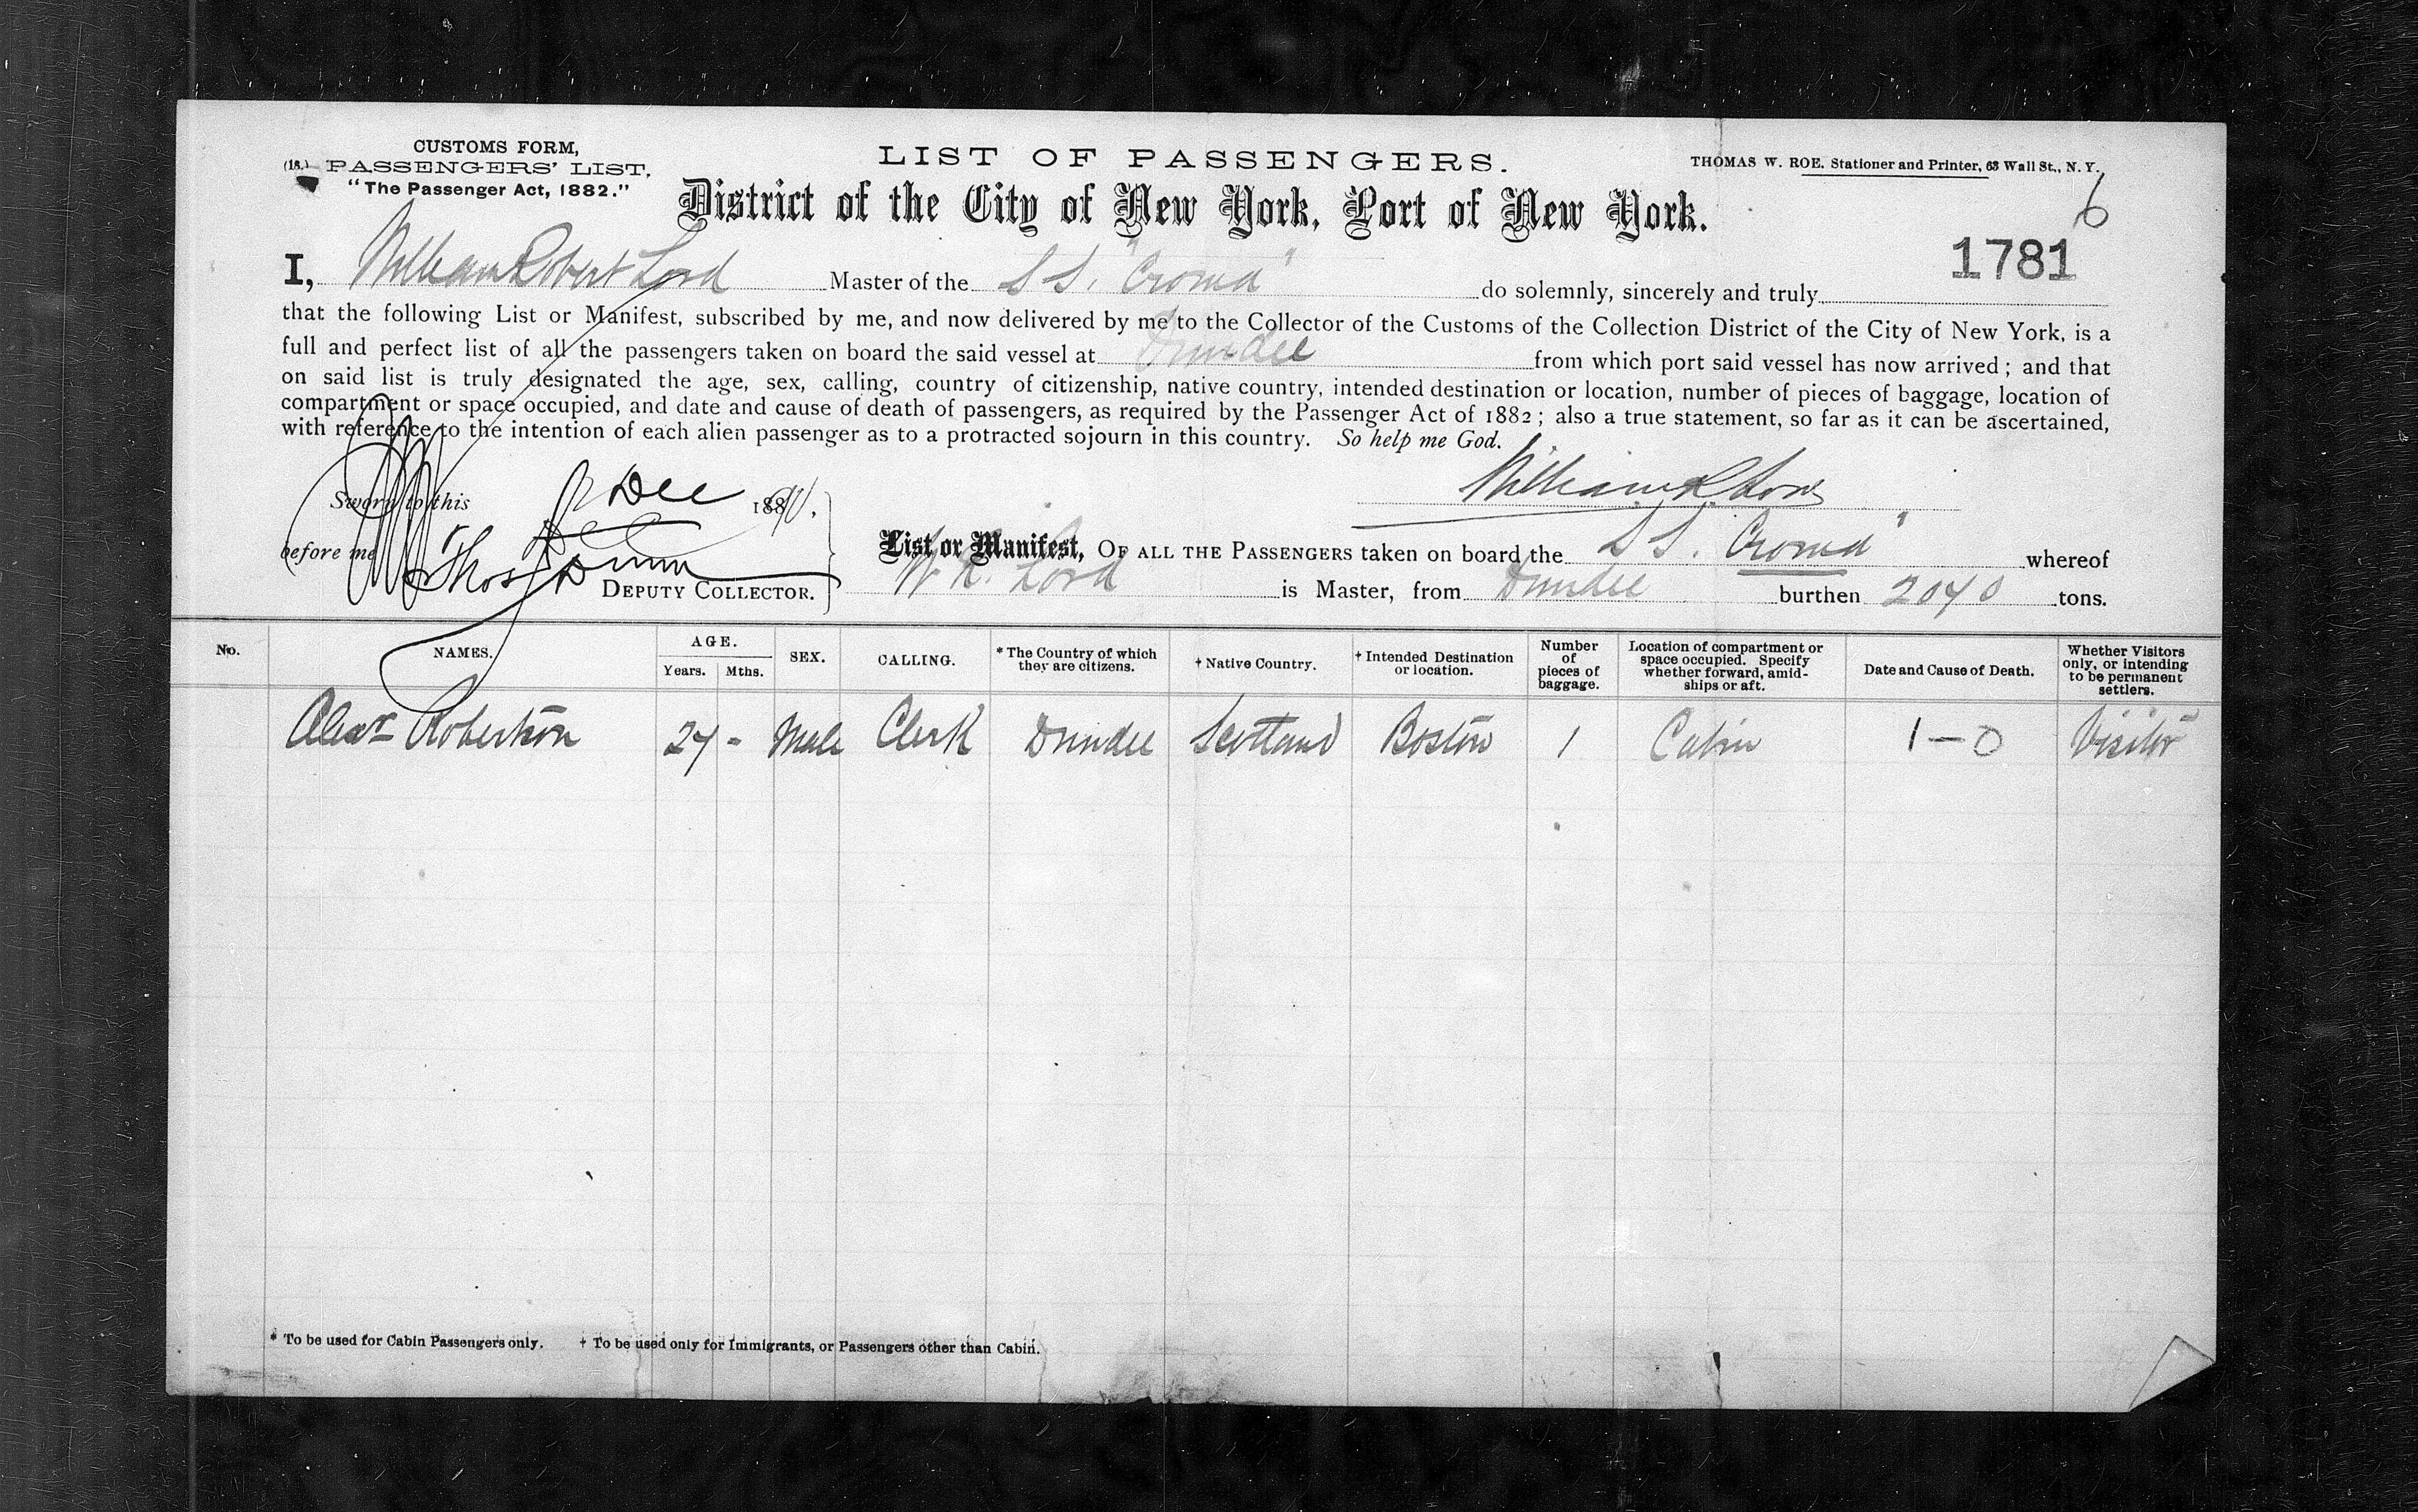 CUSTOMS FORM,
(18.) PASSENGERS' LIST,
"The Passenger Act, 1882."
LIST OF PASSENGERS.
THOMAS W. ROE. Stationer and Printer, 63 Wall St., N. Y.
District of the City of New York, Port of New York.
6
1781
I, William Robert Lord Master of the S S. "Croma" do solemnly, sincerely and truly
that the following List or Manifest, subscribed by me, and now delivered by me to the Collector of the Customs of the Collection District of the City of New York, is a
full and perfect list of all the passengers taken on board the said vessel at Dundee from which port said vessel has now arrived; and that
on said list is truly designated the age, sex, calling, country of citizenship, native country, intended destination or location, number of pieces of baggage, location of
compartment or space occupied, and date and cause of death of passengers, as required by the Passenger Act of 1882; also a true statement, so far as it can be ascertained,
with reference to the intention of each alien passenger as to a protracted sojourn in this country. So help me God.
William R Lord
Sworn to this Dec 188
before me Thos Dunn
DEPUTY COLLECTOR.
List or Manifest, OF ALL THE PASSENGERS taken on board the S S. Croma" whereof
W. R. Lord is Master, from Dundee burthen 2040 tons.
No. NAMES. AGE. Years. Mths. SEX. CALLING. * The Country of which they are citizens. † Native Country. † Intended Destination or location. Number of pieces of baggage. Location of compartment or space occupied. Specify whether forward, amid-ships or aft. Date and Cause of Death. Whether Visitors only, or intending to be permanent settlers.
Alexr Robertson 24 - Male Clerk Dundee Scotland Boston 1 Cabin 1-0 Visitor
* To be used for Cabin Passengers only. † To be used only for Immigrants, or Passengers other than Cabin.